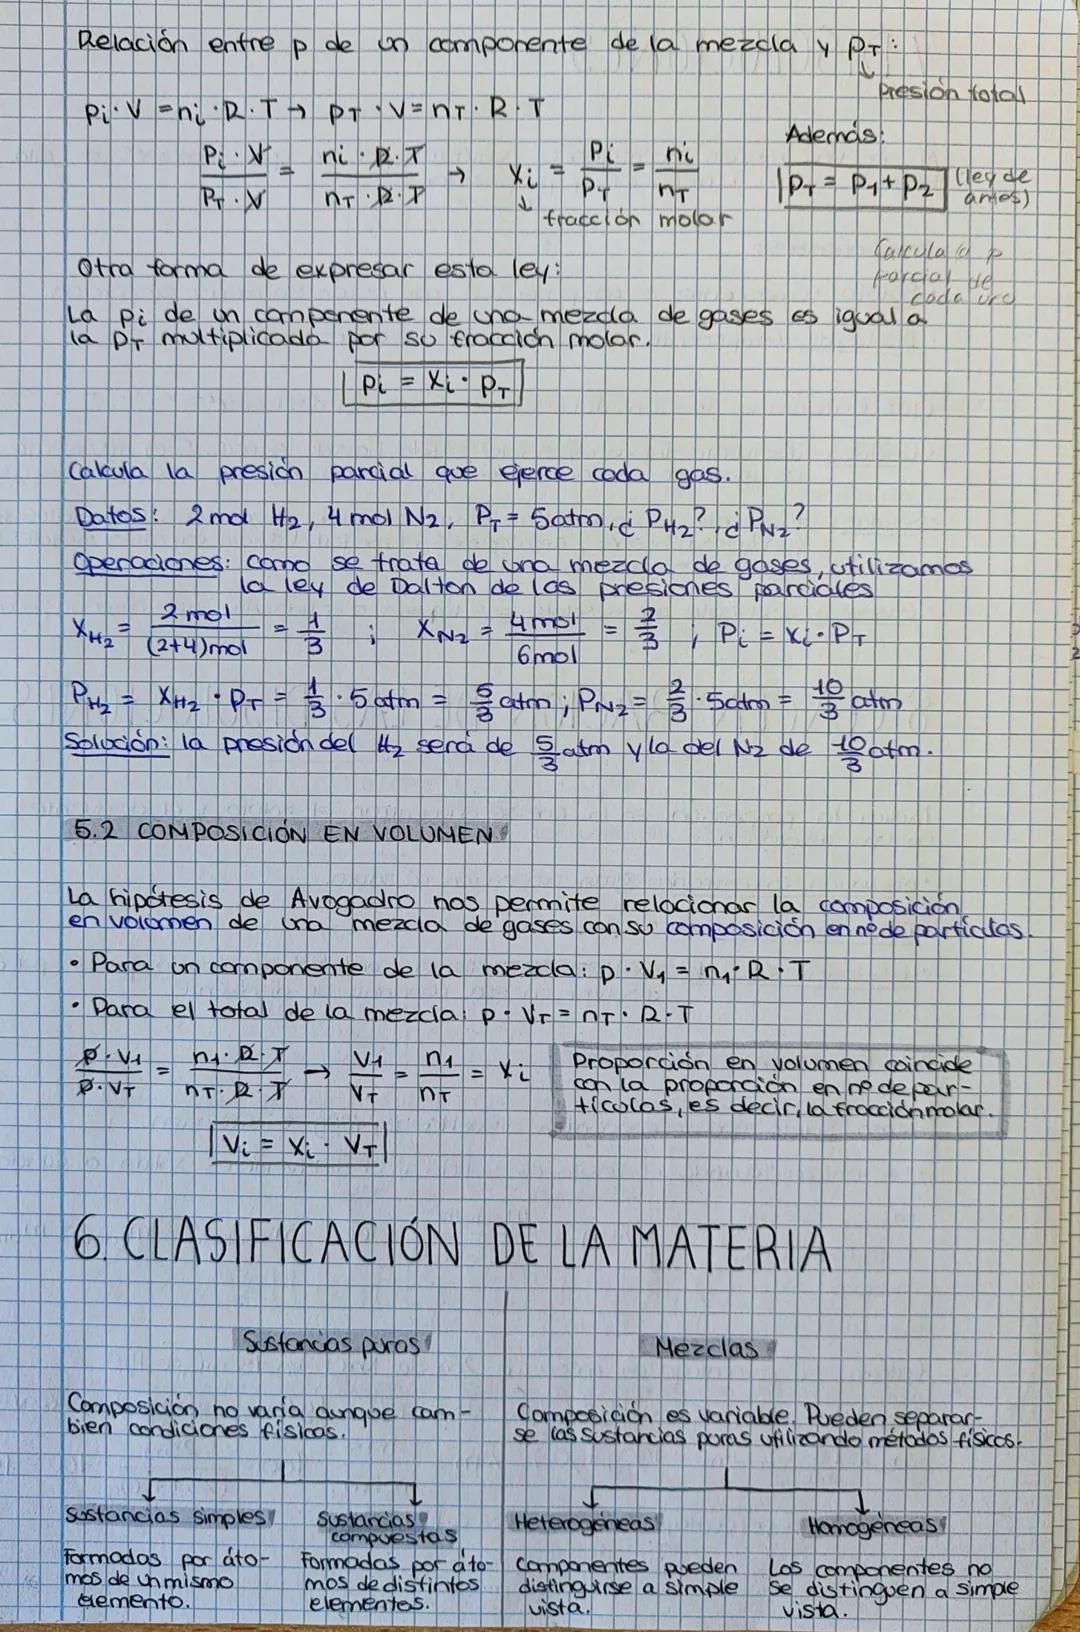 Relación entre p de un componente de la mezcla y PT:
Presión total
Pi · V = ni · R · T → PT · V = nT · R · T
Además:
Pi · V / PT · V = ni · R · T / nT · R · T → Xi = Pi / PT = ni / nT
PT = P1 + P2 (ley de antes)
fracción molar
Calcula la p
parcial de
cada uno
Otra forma de expresar esta ley:
La Pi de un componente de una mezcla de gases es igual a
la PT multiplicada por su fracción molar.
Pi = Xi · PT
Calcula la presión parcial que ejerce cada gas.
Datos: 2 mol H2, 4 mol N2, PT = 5 atm, ¿PH2?, ¿PN2?
Operaciones: Como se trata de una mezcla de gases, utilizamos
la ley de Dalton de las presiones parciales
XH2 = 2 mol / (2+4) mol = 1/3 ; XN2 = 4 mol / 6 mol = 2/3 ; Pi = Xi · PT
PH2 = XH2 · PT = 1/3 · 5 atm = 5/3 atm ; PN2 = 2/3 · 5 atm = 10/3 atm
Solución: la presión del H2 será de 5/3 atm y la del N2 de 10/3 atm.
5.2 COMPOSICIÓN EN VOLUMEN
La hipótesis de Avogadro nos permite relacionar la composición
en volumen de una mezcla de gases con su composición en nº de partículas.
• Para un componente de la mezcla: p · V1 = n1 · R · T
• Para el total de la mezcla: p · VT = nT · R · T
p · V1 / p · VT = n1 · R · T / nT · R · T → V1 / VT = n1 / nT = Xi
Proporción en volumen coincide
con la proporción en nº de par-
tículas, es decir, la fracción molar.
Vi = Xi · VT
6. CLASIFICACIÓN DE LA MATERIA
Sustancias puras
Mezclas
Composición no varía aunque cam-
bien condiciones físicas.
Composición es variable. Pueden separar-
se las sustancias puras utilizando métodos físicos.
Sustancias simples
Formadas por áto-
mos de un mismo
elemento.
Sustancias
compuestas
Formadas por áto-
mos de distintos
elementos.
Heterogéneas
Componentes pueden
distinguirse a simple
vista.
Homogéneas
Los componentes no
se distinguen a simple
vista.